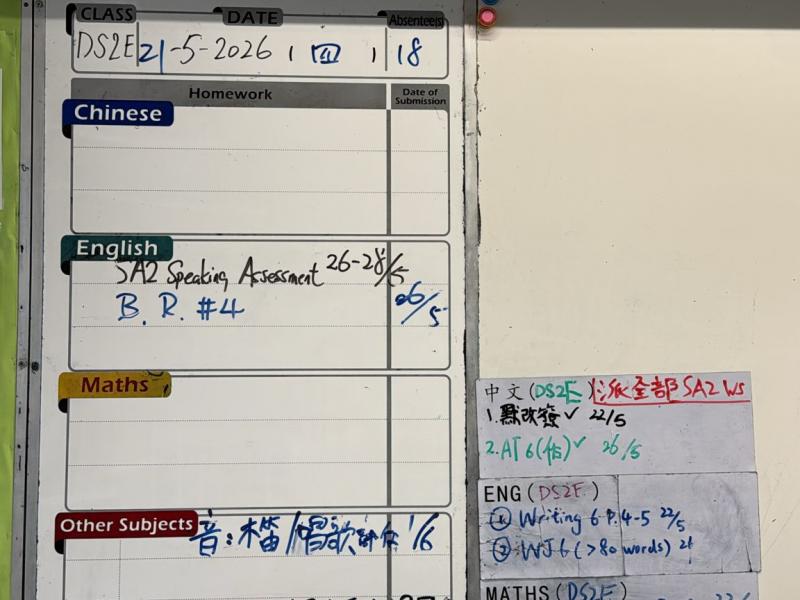 CLASS DATE Absentee(s)
DS2E 21-5-2026, 四, 18
Homework Date of Submission
Chinese
English
SA2 Speaking Assessment 26-28/5
B. R. #4 26/5
Maths
Other Subjects
音:木笛/唱歌 1/6
中文(DS2E)派全部SA2 WS
1. 默改發✓ 22/5
2. AT 6(作)✓ 26/5
ENG (DS2E)
① Writing 6 P.4-5 22/5
② WJ6 (>80 words)
MATHS (DS2E)